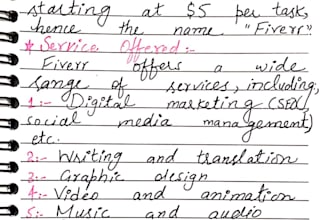 starting at $5 per task,
hence the name "Fiverr"
* Service Offered :-
Fiverr offers a wide
range of services, including,
1:- Digital marketing (SEO,
social media management)
etc.
2:- Writing and translation
3:- Graphic design
4:- Video and animation
5:- Music and audio